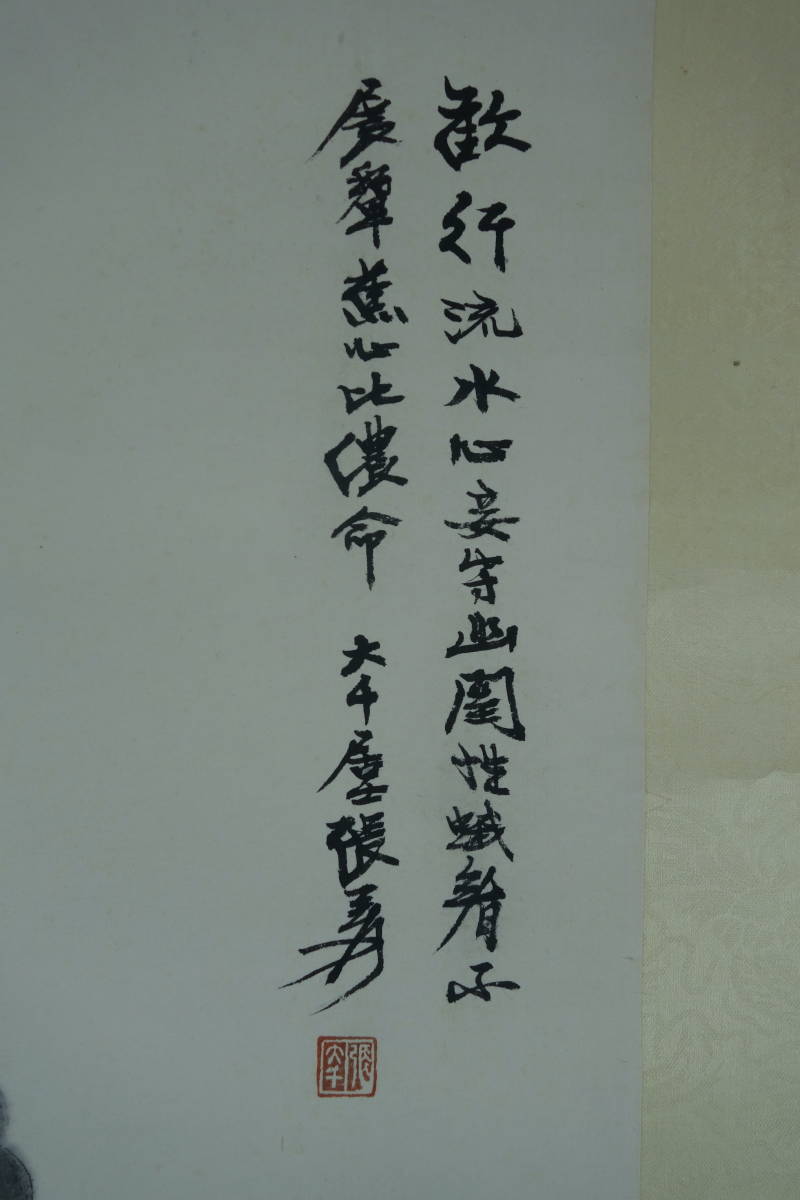 歡行流水心妾守幽閨性蛾眉不
展顰蕉心比儂命 大千居士張爰
張大千